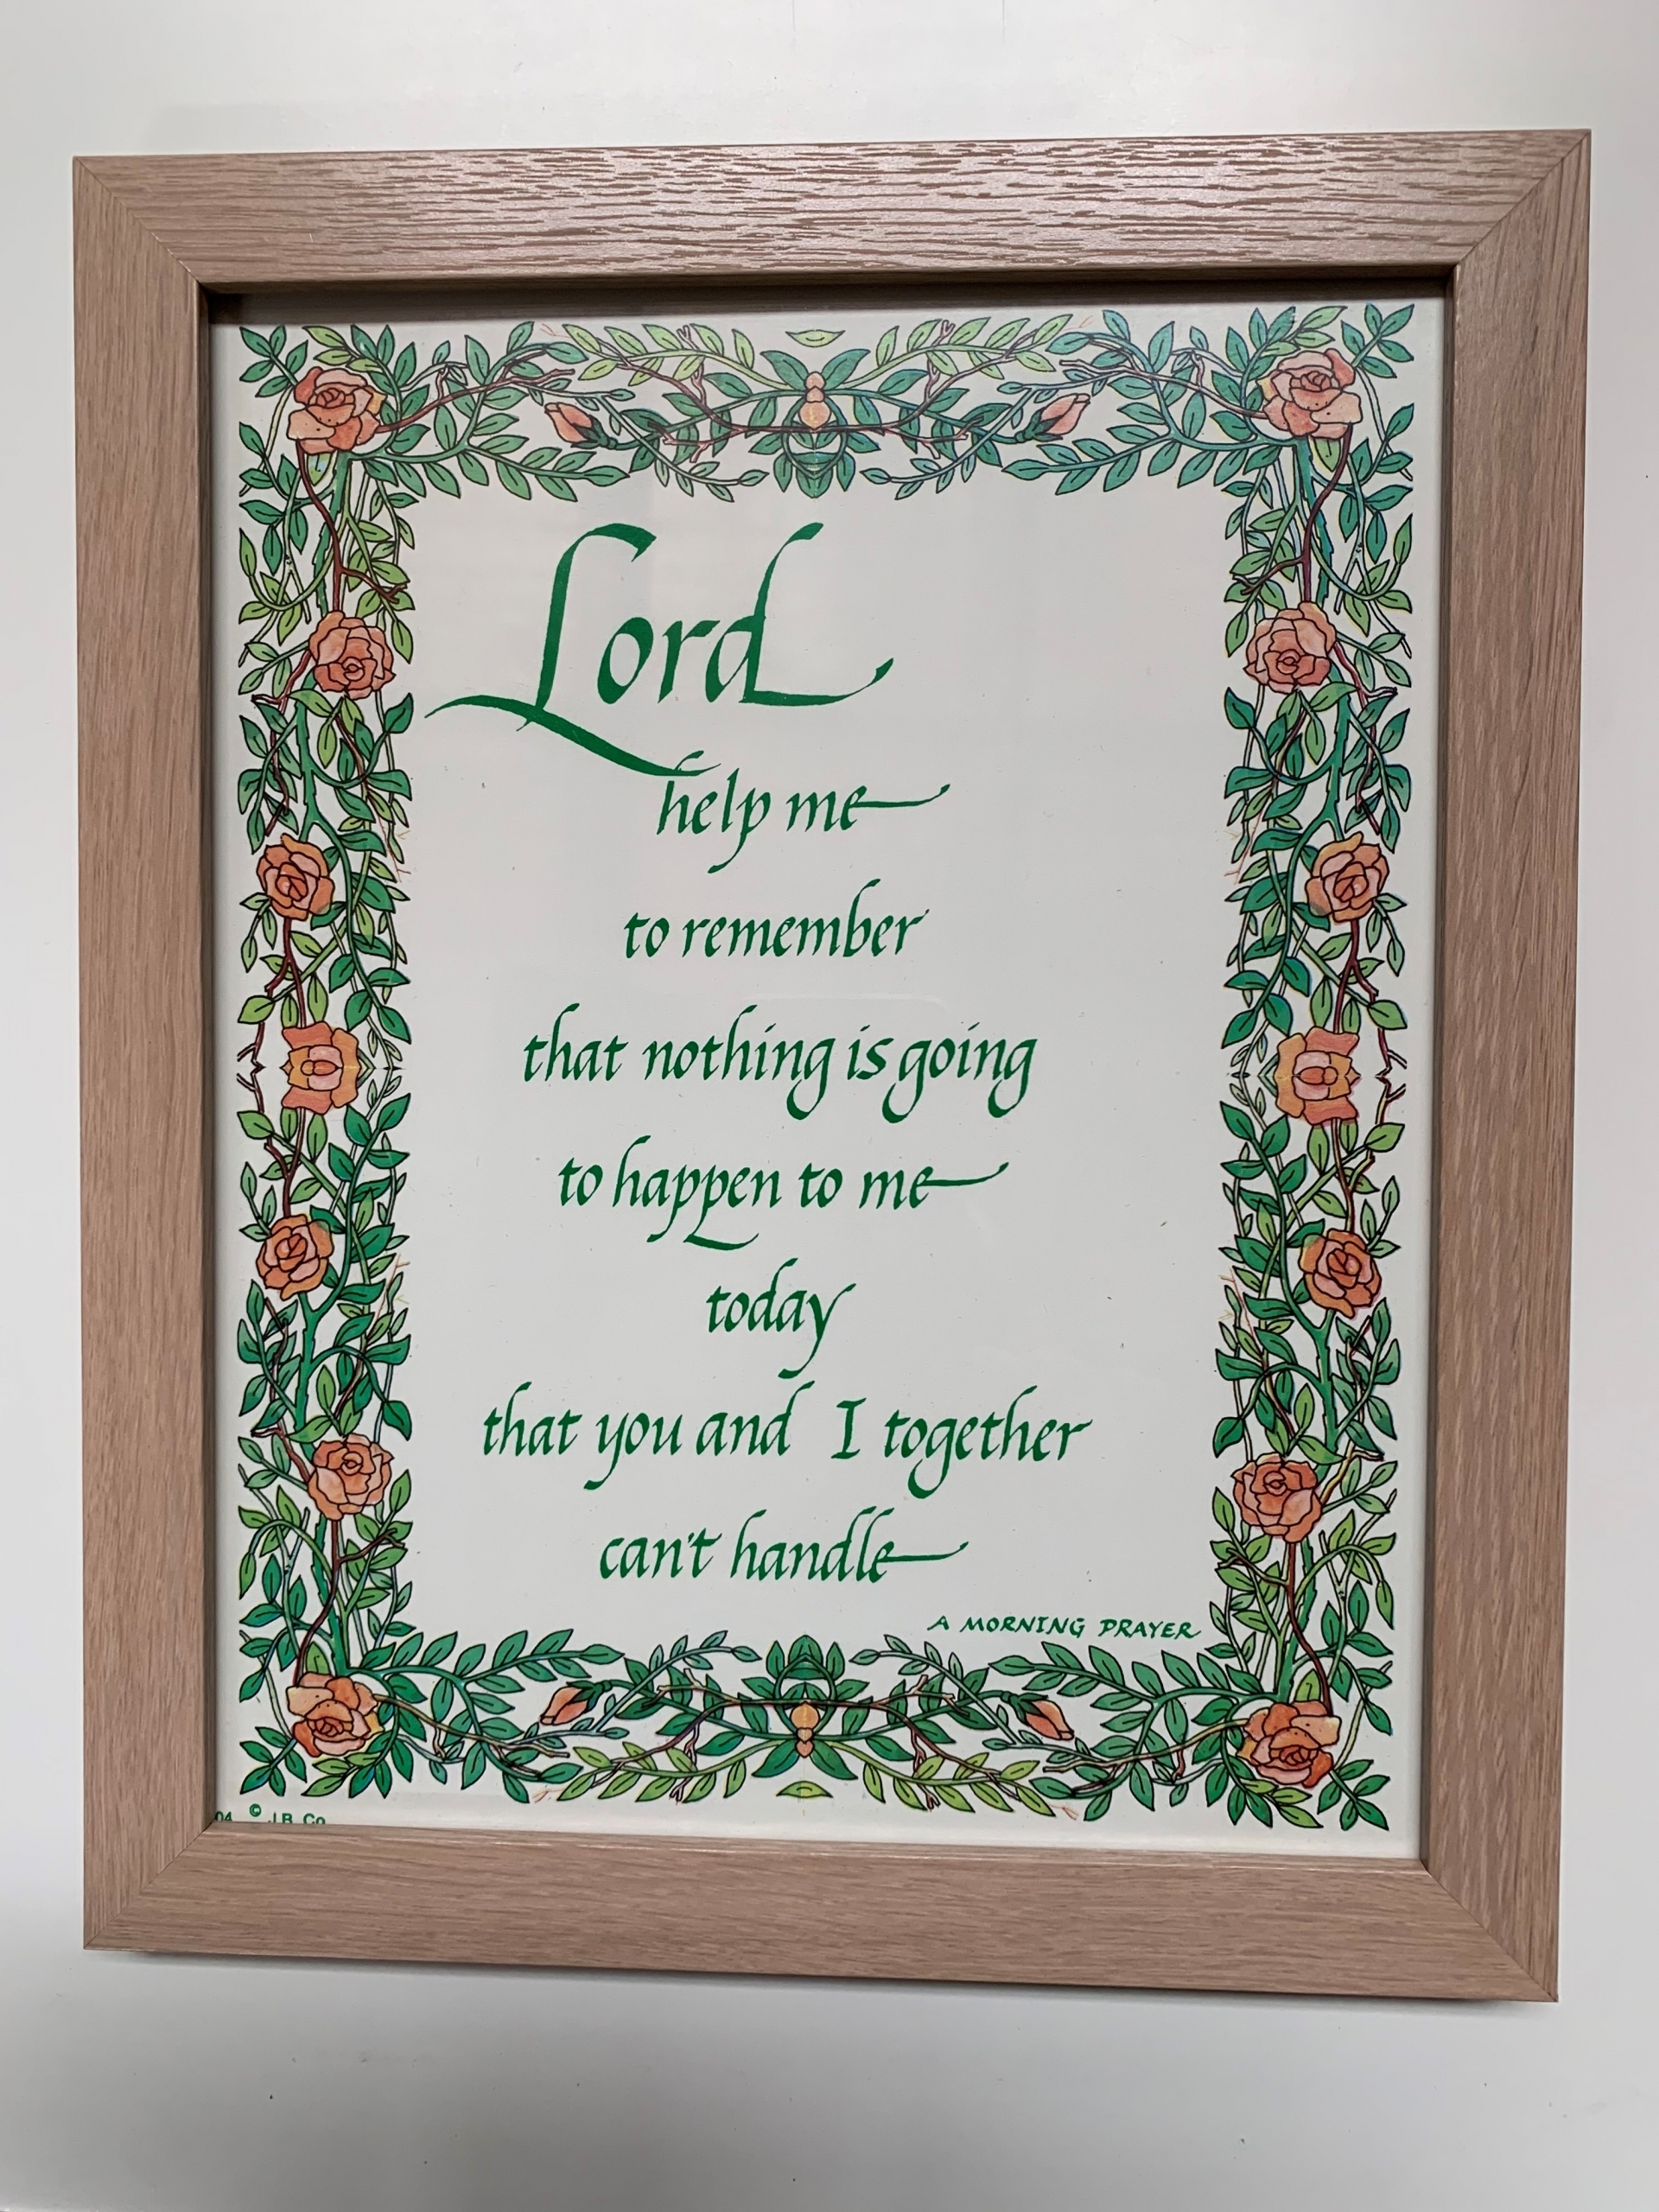 Lord
help me
to remember
that nothing is going
to happen to me
today
that you and I together
can't handle
A MORNING PRAYER
04 © J.B. Co